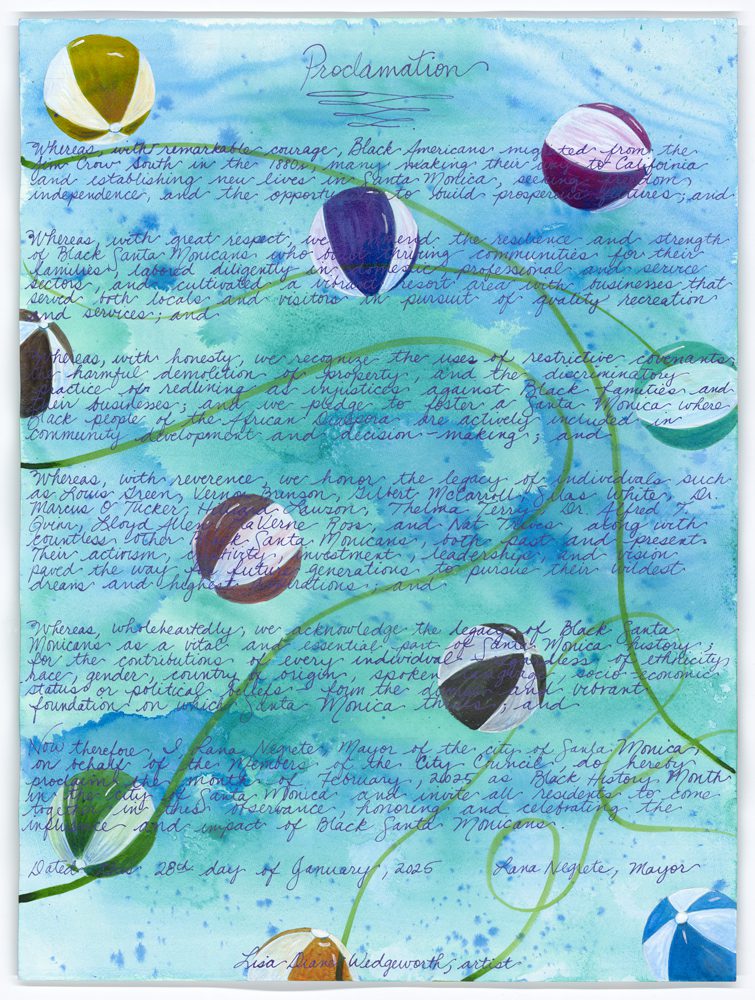 Proclamation
Whereas, with remarkable courage, Black Americans migrated from the
Jim Crow South in the 1880s, many making their way to California
and establishing new lives in Santa Monica, seeking freedom
independence, and the opportunity to build prosperous futures; and
Whereas, with great respect, we commend the resilience and strength
of Black Santa Monicans who built thriving communities for their
families, labored diligently in domestic, professional and service
sectors, and cultivated a vibrant resort area with businesses that
served both locals and visitors in pursuit of quality recreation
and services; and
Whereas, with honesty, we recognize the uses of restrictive covenants,
harmful demolition of property, and the discriminatory
practice of redlining as injustices against Black families and
their businesses; and we pledge to foster a Santa Monica where
Black people of the African Diaspora are actively included in
community development and decision-making; and
Whereas, with reverence, we honor the legacy of individuals such
as Louis Green, Vernon Brunson, Gilbert McCarroll, Silas White, Dr.
Marcus O. Tucker, Howard Lawson, Thelma Terry, Dr. Alfred T.
Quinn, Lloyd Allen, LaVerne Ross, and Nat Trives along with
countless other Black Santa Monicans, both past and present.
Their activism, creativity, investment, leadership, and vision
paved the way for future generations to pursue their wildest
dreams and highest aspirations; and
Whereas, wholeheartedly, we acknowledge the legacy of Black Santa
Monicans as a vital and essential part of Santa Monica history;
for the contributions of every individual regardless of ethnicity,
race, gender, country of origin, spoken language, socio-economic
status or political beliefs form the diverse and vibrant
foundation on which Santa Monica thrives; and
Now therefore, I Lana Negrete, Mayor of the city of Santa Monica,
on behalf of the Members of the City Council do hereby
proclaim the month of February, 2025 as Black History Month
in the City of Santa Monica and invite all residents to come
together in this observance, honoring and celebrating the
influence and impact of Black Santa Monicans.
Dated this 28th day of January, 2025 Lana Negrete, Mayor
Lisa Diane Wedgeworth, artist